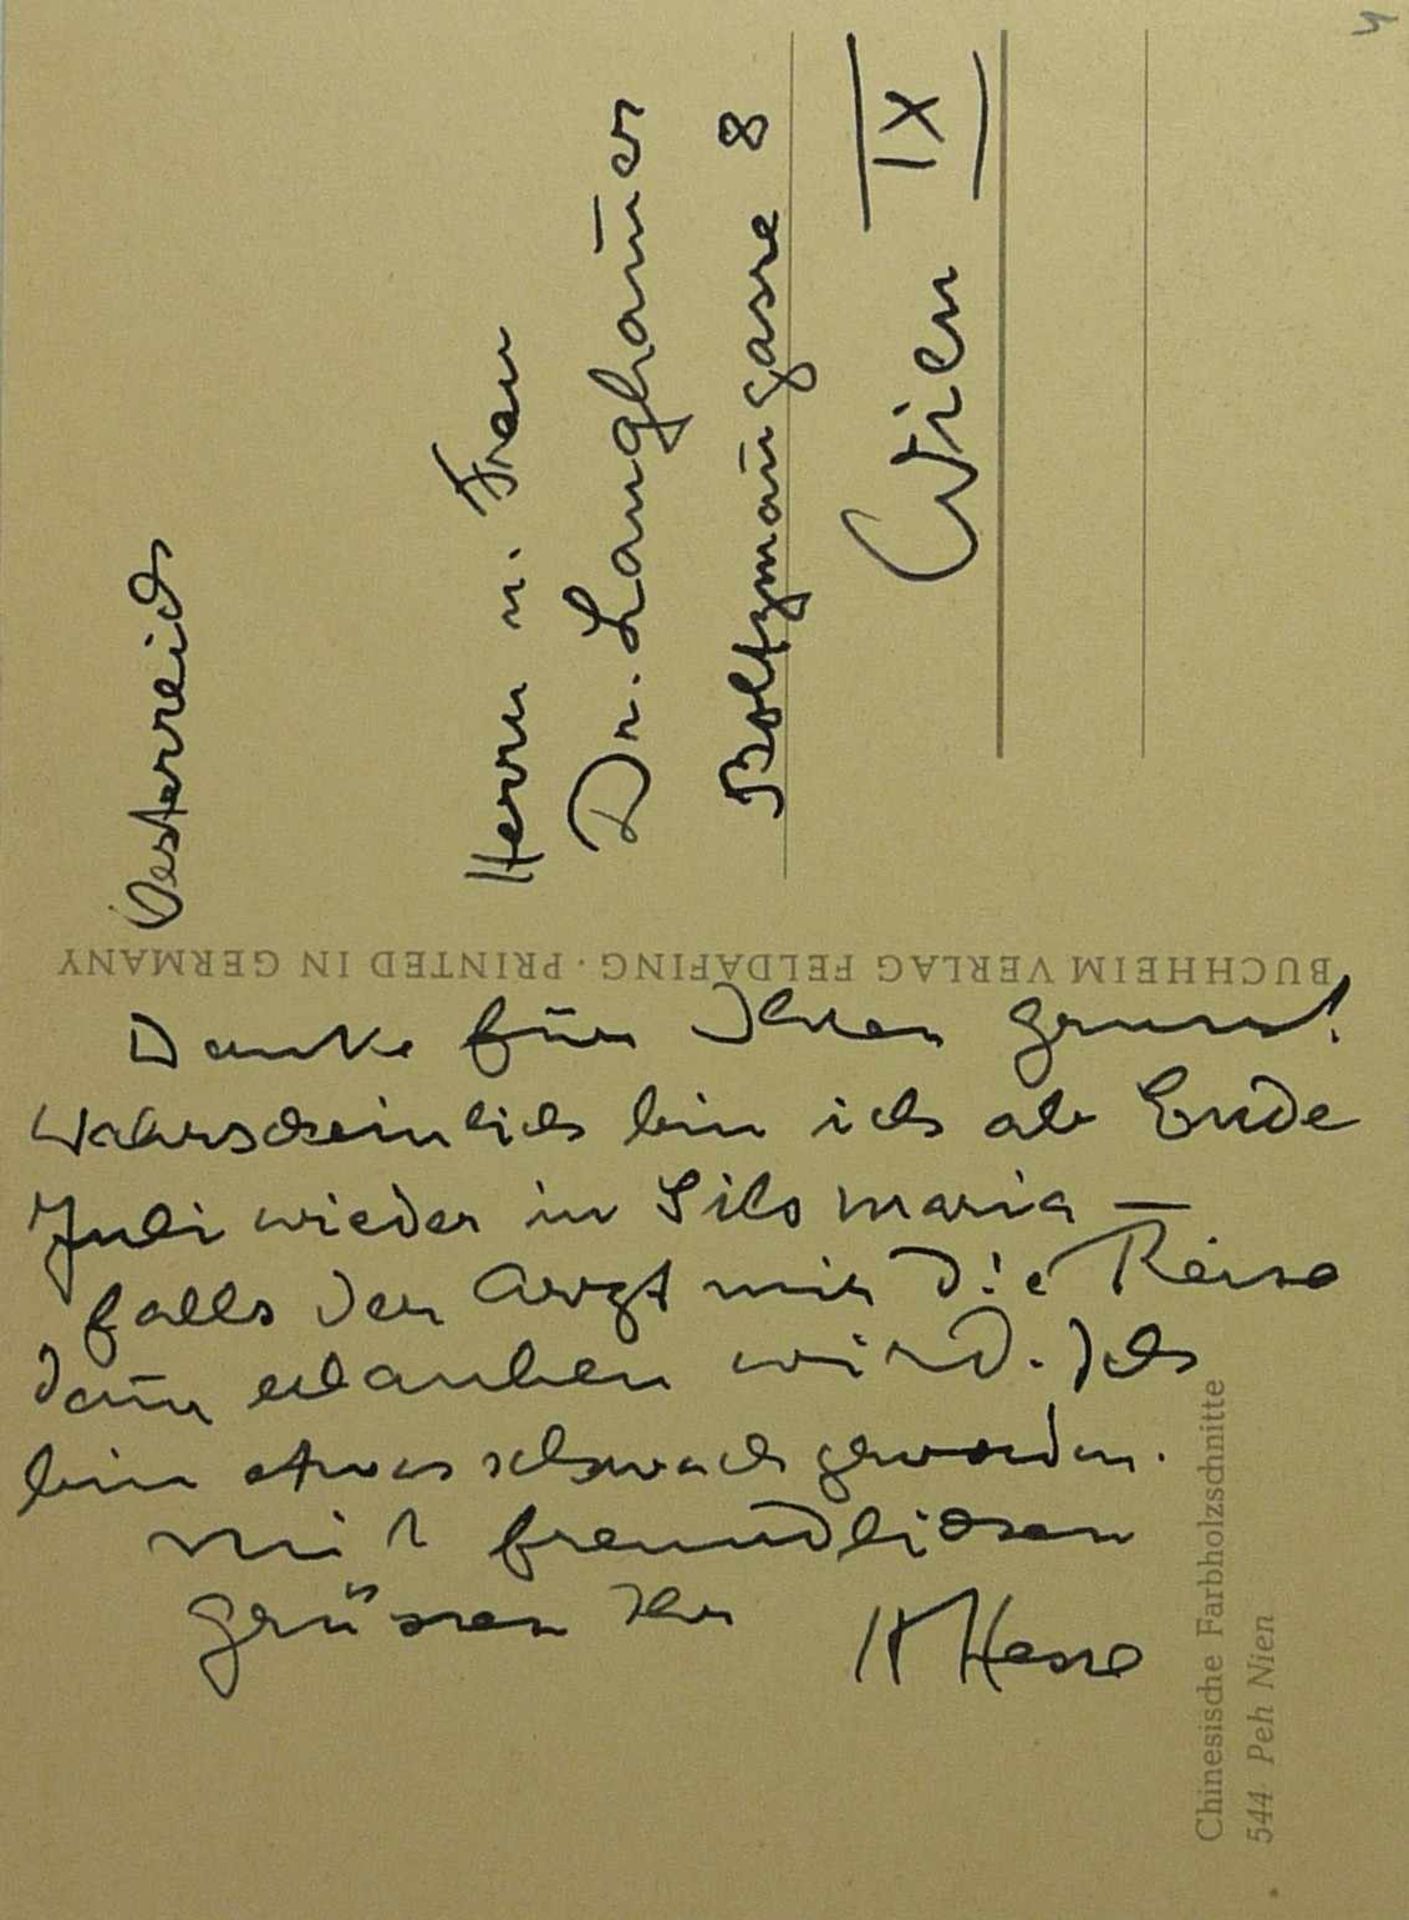 Oesterreich
Herrn u. Frau
Dr. Langham̄er
Boltzman̄gasse 8
Wien IX
BUCHHEIM VERLAG FELDAFING · PRINTED IN GERMANY
Danke für Ihren Gruss!
Wahrscheinlich bin ich ab Ende
Juli wieder in Sils Maria —
falls der Arzt mir die Reise
dan̄ erlauben wird. Ich
bin etwas schwach geworden.
Mit freundlichen
Grüssen Ihr HHesse
Chinesische Farbholzschnitte
544 Peh Nien